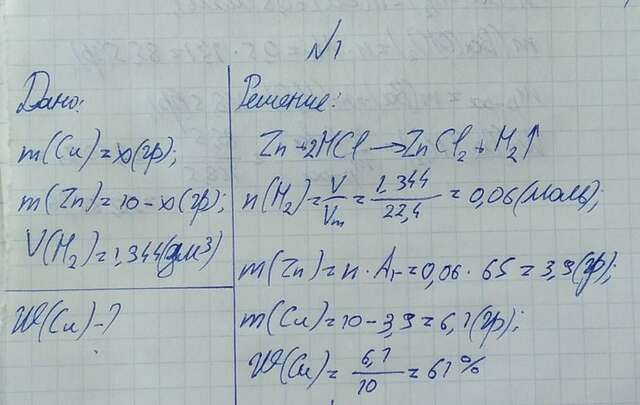 №1
Дано:
m(Cu)=x(гр);
m(Zn)=10-x(гр);
V(H₂)=1,344(дм³)
W(Cu)-?
Решение:
Zn+2HCl→ZnCl₂+H₂↑
n(H₂)=V/Vm=1,344/22,4=0,06(моль);
m(Zn)=n·Ar=0,06·65=3,9(гр);
m(Cu)=10-3,9=6,1(гр);
W(Cu)=6,1/10=61%